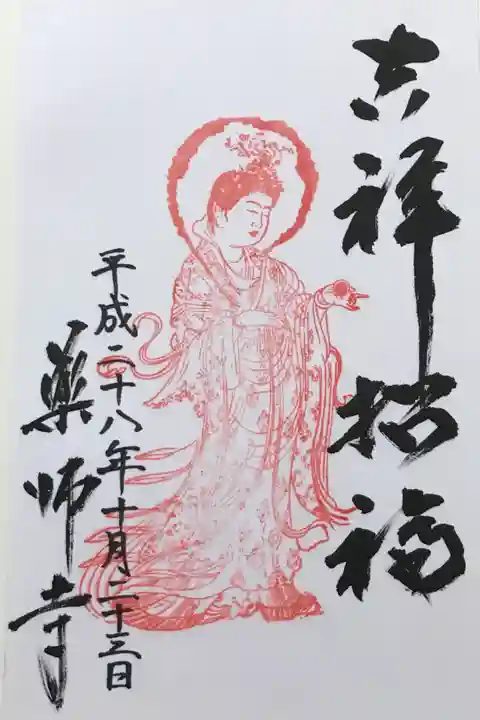 吉祥招福
平成二十八年十月二十三日
薬師寺